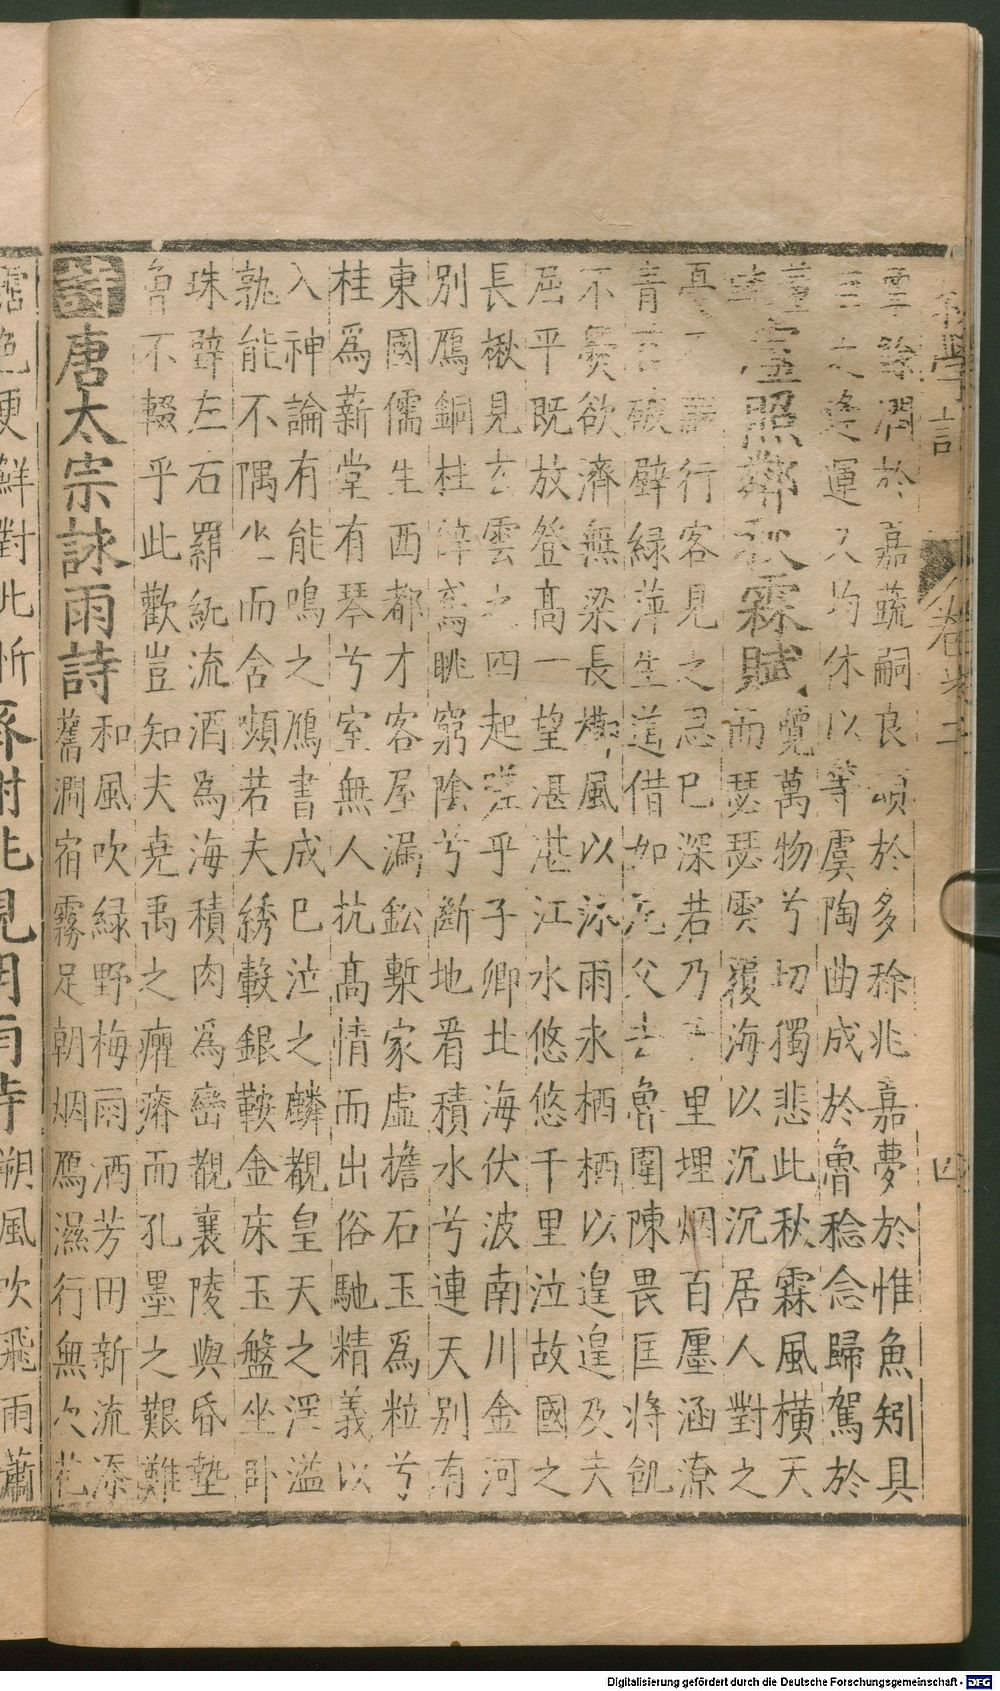 初學記 卷第二 四
霑潤於嘉蔬嗣良頌於多稌兆嘉夢於惟魚矧具
之逢運又均休以等虞陶曲成於魯稔念歸駕於
覽萬物兮切獨悲此秋霖風橫天
盧照鄰秋霖賦
而瑟瑟雲覆海以沉沉居人對之
憂不解行客見之忌巳深若乃千里埋烟百廛涵潦
青苔被壁綠萍生道借如尼父去魯圍陳畏匡將飢
不爨欲濟無梁長櫛風以沐雨永栖栖以遑遑及夫
屈平既放登高一望湛湛江水悠悠千里泣故國之
長楸見玄雲之四起嗟乎子卿北海伏波南川金河
別鴈銅柱辭鳶眺窮陰兮斷地看積水兮連天別有
東國儒生西都才客屋漏鈆槧家虛擔石玉爲粒兮
桂爲薪堂有琴兮室無人抗高情而出俗馳精義以
入神論有能鳴之鴈書成巳泣之麟觀皇天之淫溢
孰能不隅坐而含嚬若夫綉轂銀鞍金床玉盤坐卧
珠璧左右羅紈流酒爲海積肉爲巒觀襄陵與昏墊
曾不輟乎此歡豈知夫堯禹之癯瘠而孔墨之艱難
詩 唐太宗詠雨詩
和風吹綠野梅雨洒芳田新流添
舊澗宿霧足朝烟鴈濕行無欠花
霑色更鮮對此忻
朔風吹飛雨蕭